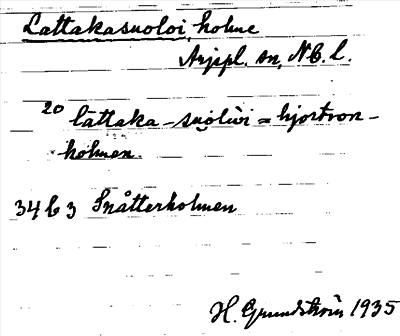 Lattakasuoloi, holme
Arjepl. sn, Nb. l.
20 lāttaka-suoluvi = hjortron-
holmen.
34 b 3 Snåtterholmen
H. Grundström 1935